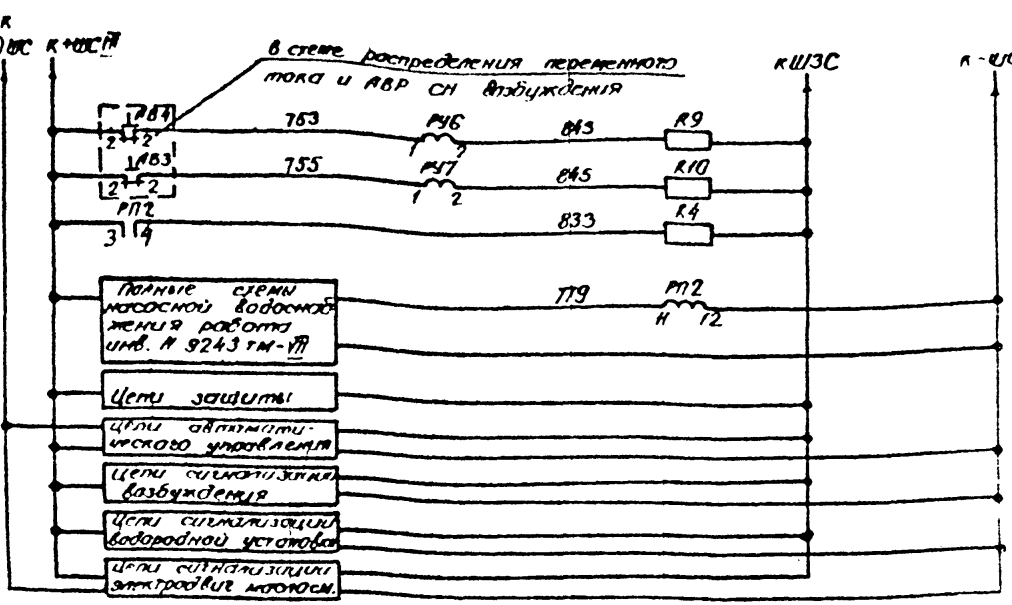 к
ШС
к+ШСIII
в схеме распределения переменного
тока и АВР СН возбуждения
кШЗС
к-ШС
АВ4
2 2
763
РУ6
1 2
843
R9
АВ3
2 2
755
РУ7
1 2
845
R10
РП2
3 4
833
R4
Полные схемы
насосной водоснаб-
жения работа
инв. N 9243 тм-VII
779
РП2
11 12
Цепи защиты
Цепи автомати-
ческого управления
Цепи сигнализации
возбуждения
Цепи сигнализации
водородной установки
Цепи сигнализации
электродвиг маслосн.